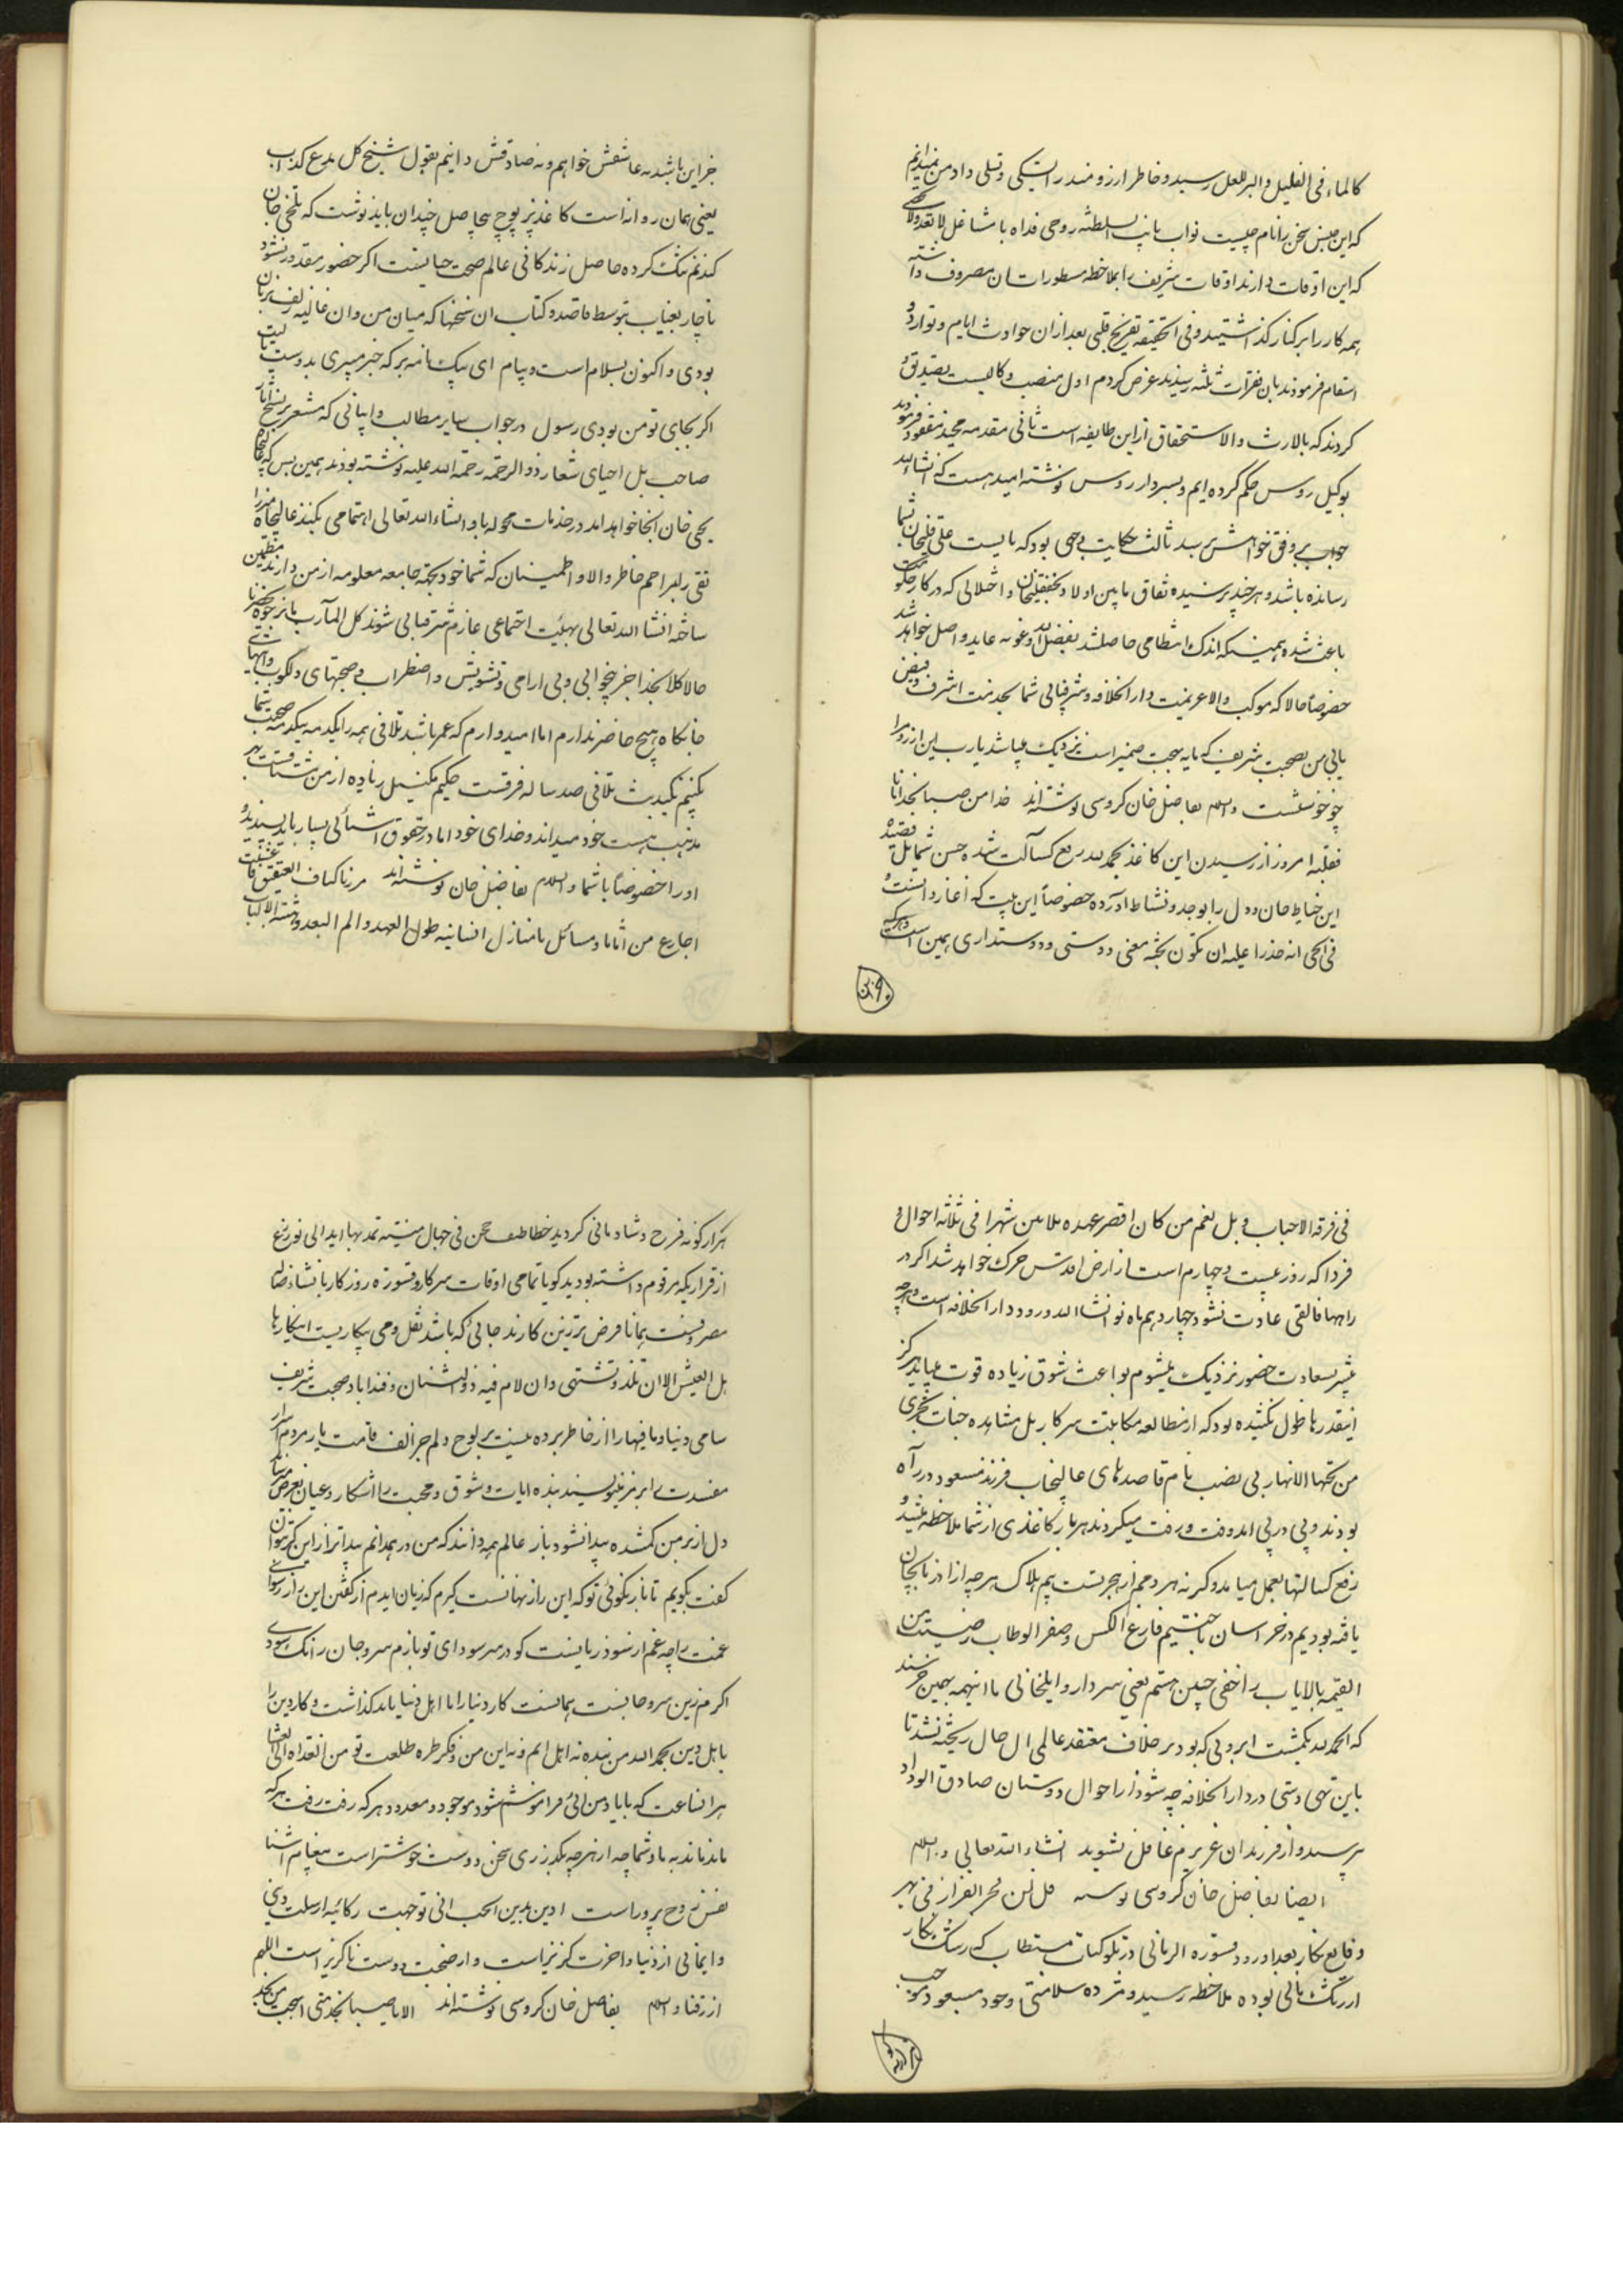 کالماء فی الغلیل والبر للعلل رسید و خاطر آرزومند را تسکی و تسلی داد من نمیدانم
که این جنس سخن را نام چیست نواب نایب السلطنه روحی فداه با مشاغل لا تعد ولا تحصی
که این اوقات دارند اوقات شریف را بملاحظه مسطورات سان مصروف داشته
همه کار را بر کنار گذاشتند و فی الحقیقه تفریح قلبی بعد از آن حوادث ایام و توارد
اسقام فرمودند بان فقرات ثلثه رسیدند عرض کردم اول منصب وکالیست تصدیق
کردند که بالارث والاستحقاق از این طایفه است ثانی مقدمه فرمودند
بوکیل روس حکم کرده‌ایم و بسردار روس نوشته امید هست که انشاءالله
جواب بر وفق خواهش برسد ثالث حکایت بود که بایست علی قلیخان بشما
رسانده باشد و هر چند پرسیده نفاق مابین اولاد نجفقلیخان و اختلالی که در کار حکومت
باعث شده همینکه اندک انتظامی حاصلشد بفضل الله وعونه عاید و اصل خواهد شد
خصوصاً حالا که موکب والا عزیمت دارالخلافه و شرفیابی شما بخدمت اشرف و فیض
یابی من بصحبت شریف که مایه بهجت ضمیر است نزدیک میباشد یارب این آرزو مرا
چو خوشست والسلام بفاضل خان کروسی نوشته‌اند خدا من صبا نجد امانا
فقلبه امروز از رسیدن این کاغذ بحمدالله رفع کسالت شده حسن شمایل قصیده
این خیاط جان و دل را بوجد و نشاط آورده خصوصاً این بیت که آغاز دانست و
فی الحی انه حذرا علیه ان تکون بحبه معنی دوستی و دوستداری همین است و هر که
جز این باشد نه عاشقش خواهم و نه صادقش دانیم بقول شیخ کل مدع کذاب
یعنی همان روانه است کاغذ پر پوچ بیحاصل چندان باید نوشت که تلخی جان
کندنم شک کرده حاصل زندکانی عالم صحبت حیاتست اکر حضور مقدور نشود
ناچار بغیاب بتوسط قاصد و کتاب ان سخنها که میان من و ان غالیه زلف بزبان
بودی و اکنون بسلام است و پیام ای پیک نامه بر که خبر میبری بدوست لیت
اکر بجای تو من بودی رسول در جواب سایر مطالب و ابیاتی که مشعر بر نسخ آثار
صاحب بل احیای شعار ذوالرحمه رحمة الله علیه نوشته بودند همین بس که عالیجاه
یحیی خان آنجا خواهد آمد در خدمات محوله باو انشاءالله تعالی اهتمامی بکنند عالیجاه میرزا
تقی را بمراحم خاطر والا و اطمینان که شما خود بجهته جامعه معلومه از من دارند مطمئن
ساخته انشاءالله تعالی بهیئت اجتماعی عازم شرفیابی شوند کل المآرب
حالا کلا بجز آخر بیخوابی و بی ارامی و تشویش و اضطراب و صحبتهای دلکوب
جانکاه هیچ حاضر ندارم اما امیدوارم که عمر باشد تلافی همه را یکدمه بیکدمه صحبت شما
بکنیم بیکدمه تلافی صد ساله فرقت میکنم زیاده از من مشتاقت بهر
مذهب هست خود میداند و خدای خود اما در حقوق آشنائی بسیار ناپسندید و
او را خصوصاً با شما والسلام بفاضل خان نوشته‌اند مررنا کناف العقیق
اجارع من آثانا و مسائل نا منازل افنانیه طول العهد والم البعد و شتته الالباب
فی فرقة الاحباب و بل نغم من کان اقصر عهده ثلاثین شهرا فی ثلثة احوال و
فردا که روز بیست و چهارم است از ارض اقدس حرکت خواهد شد اکر در
راهها فالقی عادت نشود چهاردهم ماه نو انشاالله ورود دارالخلافه است و هر چه
بیشتر بسعادت حضور نزدیک میشوم بواعث شوق زیاده قوت میابد هرکز
اینقدرها طول نکشیده بود که از مطالعه مکاتبت سرکار بل مشاهده جنات تجری
من تحتها الانهار بی نصیب باشم قاصدهای عالیجناب فرزند مسعود در راه
بودند و پی در پی آمد و رفت میکردند هر بار کاغذی از شما ملاحظه میشد و
رفع کسالتها بعمل میامد و کرنه هر دمم از هجر تست بیم هلاک هر چه از آذربایجان
یافته بودیم در خراسان باختیم فارغ الکیس و صفر الوطاب رضیت من
الغنیمه بالایاب راضی چنین هستم یعنی سردار و ایلخانی با اینهمه بهمین خرسند
که الحمدلله بکمشت ابروئی که بود بر خلاف معتقد عالی ال حال ریخته نشد تا
باین تهی دستی در دارالخلافه چه شود از احوال دوستان صادق الوداد
بپرسید و از فرزندان عزیزم غافل نشوید انشاءالله تعالی والسلام
ایضا بفاضل خان کروسی نوشته قل لن
وقایع نکار بعد از درود فستوره الربانی در تلو کتاب مستطاب که رشک نکار
ارژنک مانی بوده ملاحظه رسید و مژده سلامتی وجود مسعود موجب
هزار کونه فرح و شادمانی کردید خطاطیف حجن فی حبال متینة تمد بها اید الیک نوازع
از قراریکه مرقوم داشته بودید کویا تمامی اوقات سرکار و فستوره روزکار بانشاء رضاله
مصروفست همانا فرض تر زین کارند جائی که باشد نقل و می بیکاریست این کارها
بل العیش الا ان تلذ و تشتهی وان لام فیه ذوالشنان وفندا یاد صحبت شریف
سامی دنیا و مافیها را از خاطر برده نیست بر لوح دلم جز الف قامت یار مردم اسرار
مفسدت را بر مز بنویسند بنده ایات شوق و محبت را آشکار و عیان بعرض میرسانم
دل از بر من کمشده پیدا نشود باز عالم همه دانند که من در همدانم پیداتر از این کجا توان
کفت بکویم تا باز نکوئی تو که این راز نهانست کیرم که زیان ایدم از کفتن این راز رسوائی
غمت را چه غم ار سود زیانست کو در سر سودای تو بازم سر و جان رانک سودی
اکرم زین سر و جانست همانست کار دنیا را با اهل دنیا باید کذاشت و کار دین را
با اهل دین بحمدالله من بنده نه اهل اینم و نه این من و فکر طره طلعت تو من الغداة الی العشا
هر انساعت که بایاد من ائی فراموشم شود موجود و معدود هر که رفت رفت هر که
ماند ماند به ما و شما چه از هر چه بکذری سخن دوست خوشتر است پیغام آشنا
نفس روح پرور است ادین بدین الحب انی توجهت رکائبه ارسلت دینی
و ایمانی از دنیا و اخرت کزیر است و از صحبت دوست ناکزیر است اللهم
ارزقنا والسلام بفاضل خان کروسی نوشته‌اند الا یا صبا نجد متی هجت من نجد